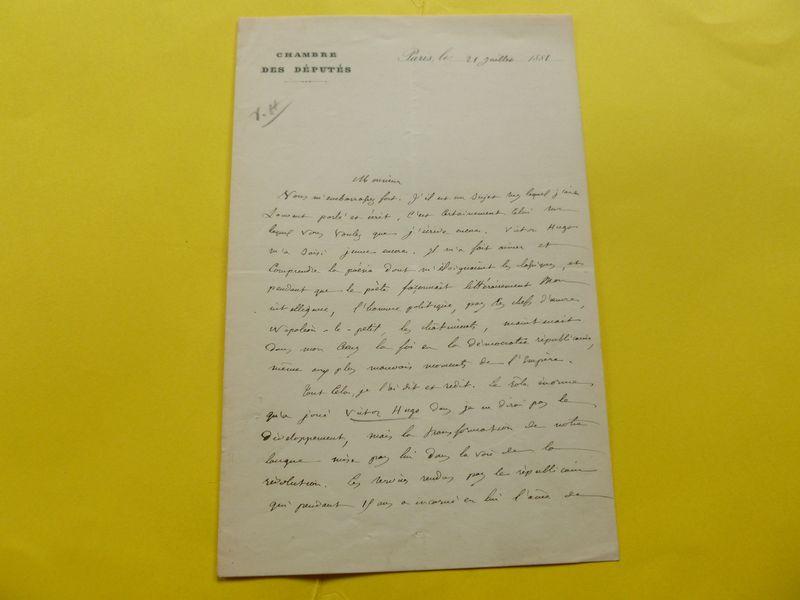 CHAMBRE
DES DÉPUTÉS
Paris, le 21 juillet 1881
V.H
Monsieur
Vous m'embarrassez fort. S'il est un sujet sur lequel j'aie
souvent parlé et écrit, c'est certainement celui sur
lequel vous voulez que j'écrive encore. Victor Hugo
m'a saisi jeune encore. Il m'a fait aimer et
comprendre la poésie dont m'éloignaient les classiques, et
pendant que le poète façonnait littérairement mon
intelligence, l'homme politique, par ses chefs d'œuvre,
Napoléon-le-petit, les châtiments, maintenait
dans mon cœur la foi en la démocratie républicaine,
même aux plus mauvais moments de l'Empire.
Tout cela, je l'ai dit et redit. Le rôle énorme
qu'a joué Victor Hugo dans je ne dirai pas le
développement, mais la transformation de notre
langue mise par lui dans la voie de la
révolution. Les services rendus par le républicain
qui pendant ans a incarné en lui l'âme de